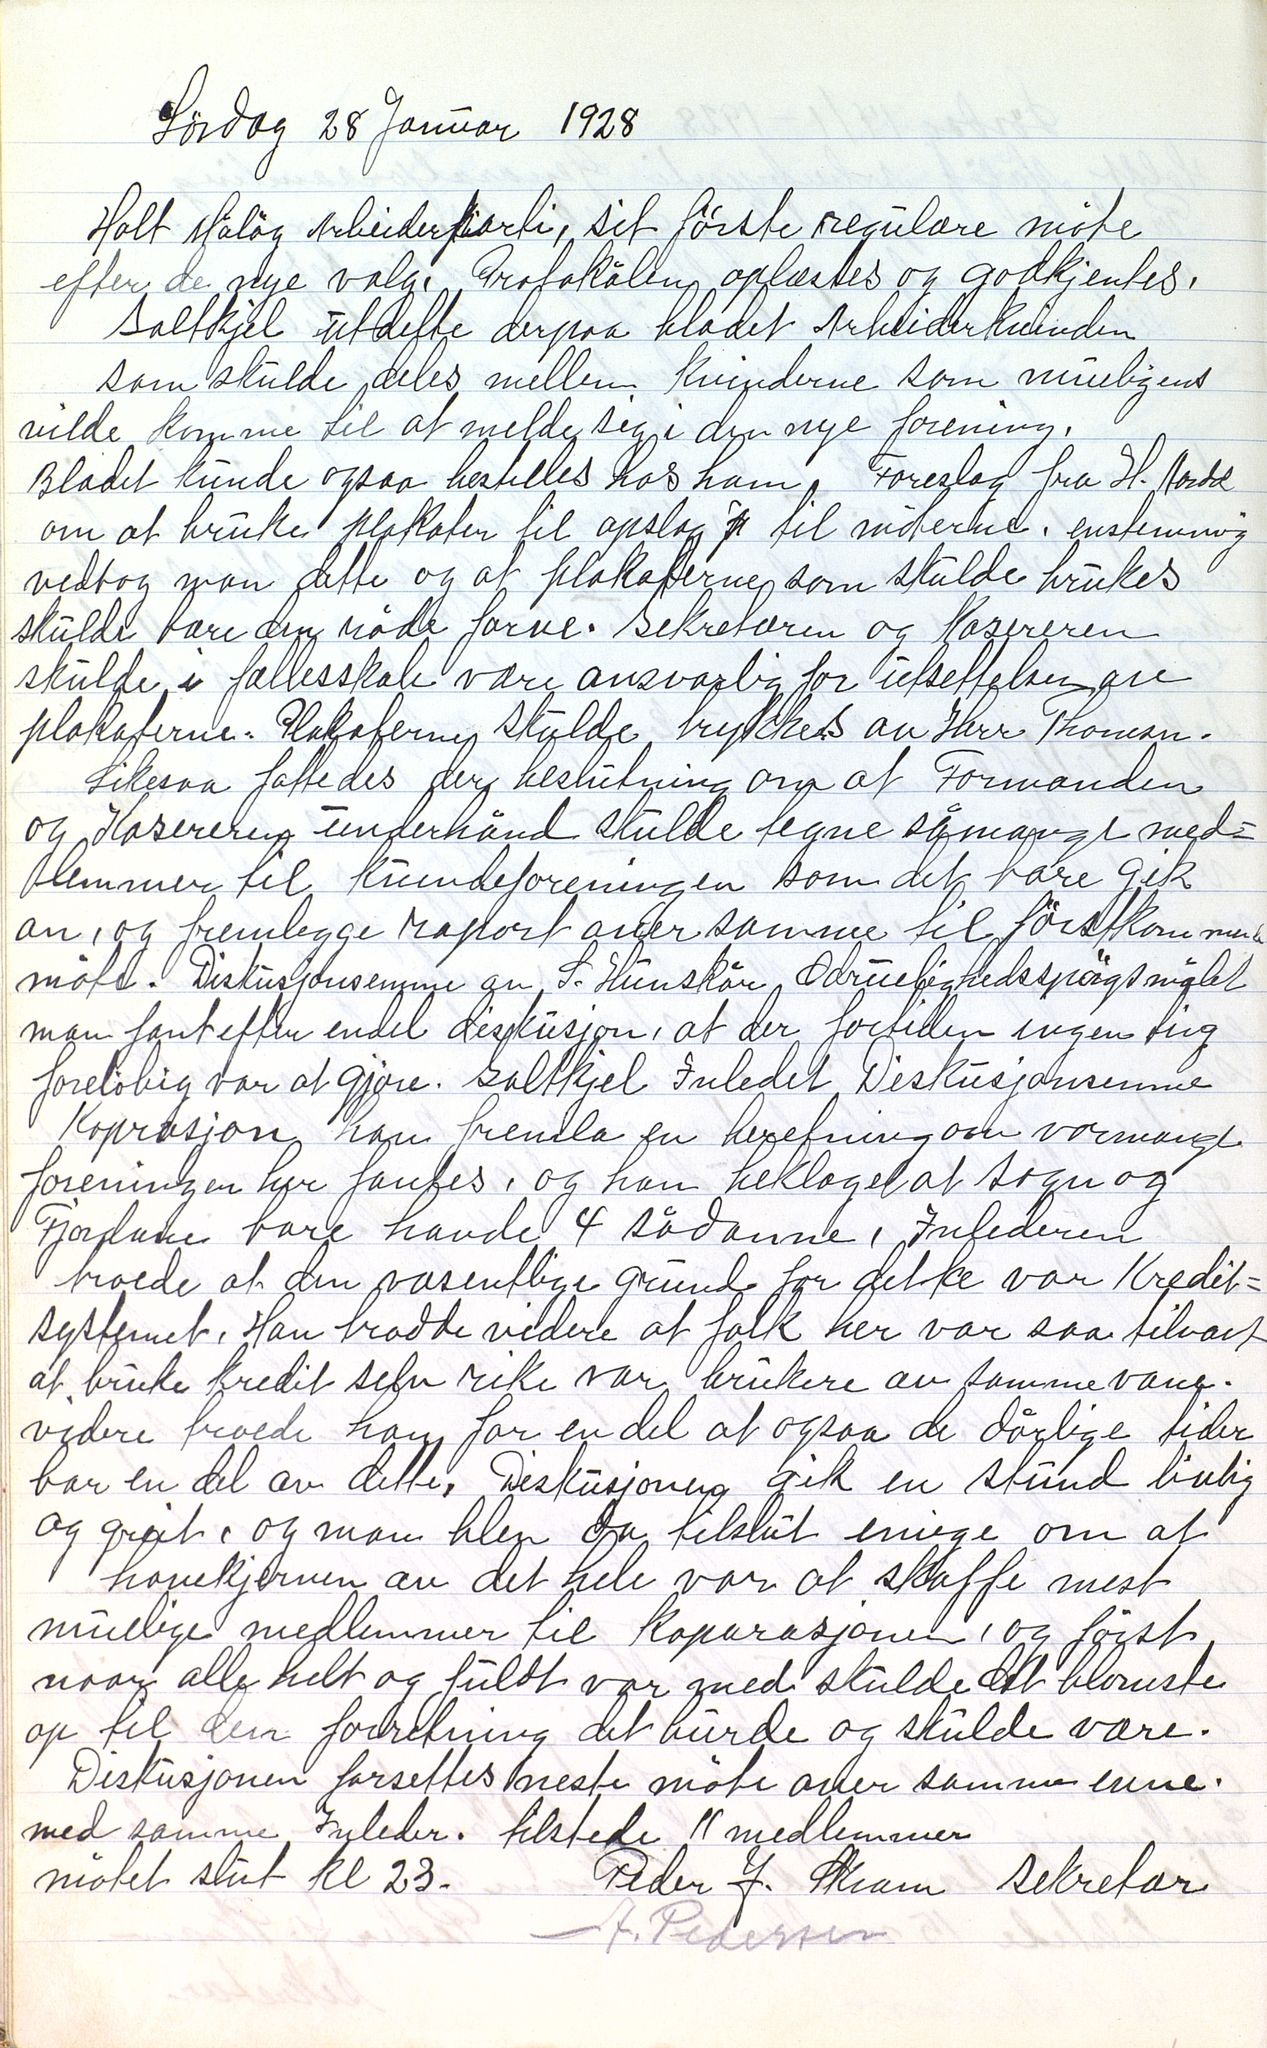 Lördag 28 Januar 1928
Holt Måløg Arbeiderparti, sit förste regulære möte
efter de nye valg. Protokålen oplæstes og godkjentes.
Saltkjel utdelte derpaa bladet Arbeiderkvinden
som skulde deles mellem kvinderne som mueligens
vilde komme til at melde sig i den nye forening.
Bladet kunde ogsaa bestilles hos ham. Foreslag fra H.
om at bruke plakater til opslag til möterne. enstemmig
vedtog man dette og at plakaterne som skulde brukes
skulde bære den röde farve. Sekretæren og Kasereren
skulde i fællesskab være ansvarlig for utsettelsen ave
plakaterne. Plakaterne skulde trykkes av Herr Thomsen.
Likesaa fattedes der beslutning om at Formanden
og Kasereren underhånd skulde tegne såmange med=
lemmer til kvindeforeningen som det bare gik
an, og fremlegge raport over samme til förstkommende
möte. Diskusjonsemne av S. Hunskår, Ædruelighedsspörgsmålet
man fant efter endel diskusjon, at der fortiden ingen ting
forelöbig var at gjöre. Saltkjel Inledet Diskusjonsemne
Koprasjon han fremla en beretning om vormange
foreningen her fantes, og han beklaget at Sogn og
Fjordane bare havde 4 sådanne, Inlederen
troede at den væsentlige grund for dette var Kredit=
systemet. Han trodde videre at folk her var saa tilvant
at bruke kredit selv rike var brukere av samme vane.
videre troede han for en del at ogsaa de dårlige tider
bar en del av dette. Diskusjonen gik en stund livlig
og greit, og man blev da tilslut eniege om at
hovekjernen av det hele var at skaffe mest
muelige medlemmer til koparasjonen, og först
naar alle helt og fuldt var med skulde det blomste
op til den forretning det burde og skulde være.
Diskusjonen forsettes neste möte over samme emne.
med samme Inleder. tilstede 11 medlemmer
mötet slut kl 23. Peder J. Kvam sekretær
A. Pedersen